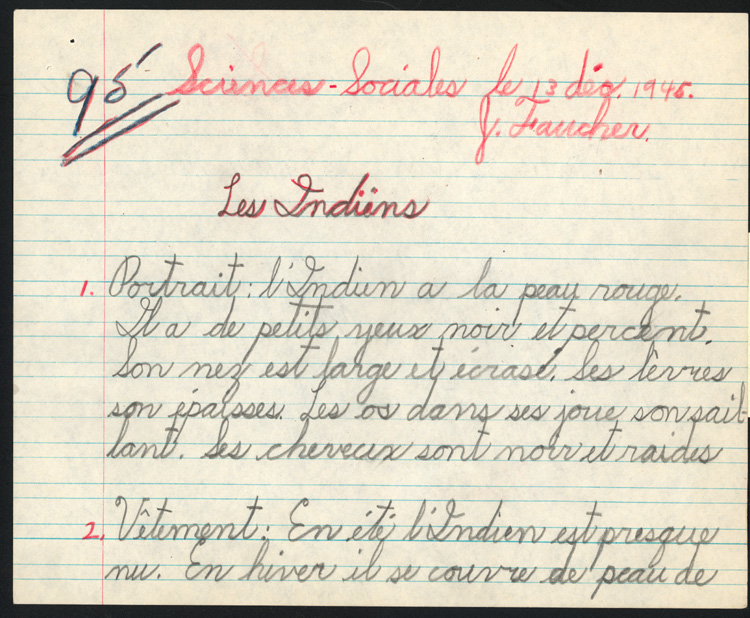 95
Sciences-Sociales le 13 déc. 1945.
J. Faucher.
Les Indiens
1. Portrait: l'Indien a la peau rouge.
Il a de petits yeux noir et percent.
Son nez est large et écrasé. Ses lèvres
son épaisses. Les os dans ses joue son sail-
lant. Ses cheveux sont noir et raides
2. Vêtement: En été l'Indien est presque
nu. En hiver il se couvre de peau de